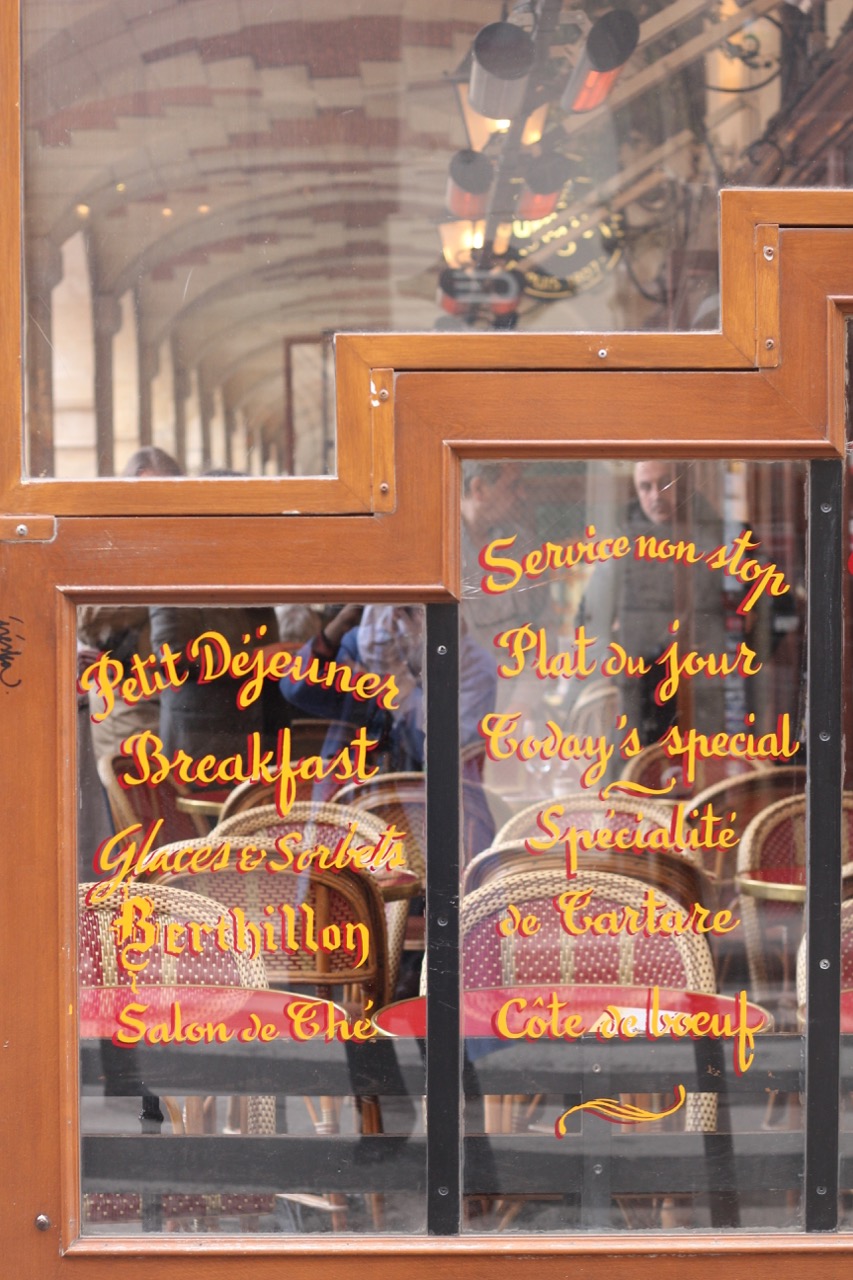 Petit Déjeuner
Breakfast
Glaces & Sorbets
Berthillon
Salon de Thé
Service non stop
Plat du jour
Today's special
Spécialité
de Tartare
Côte de boeuf